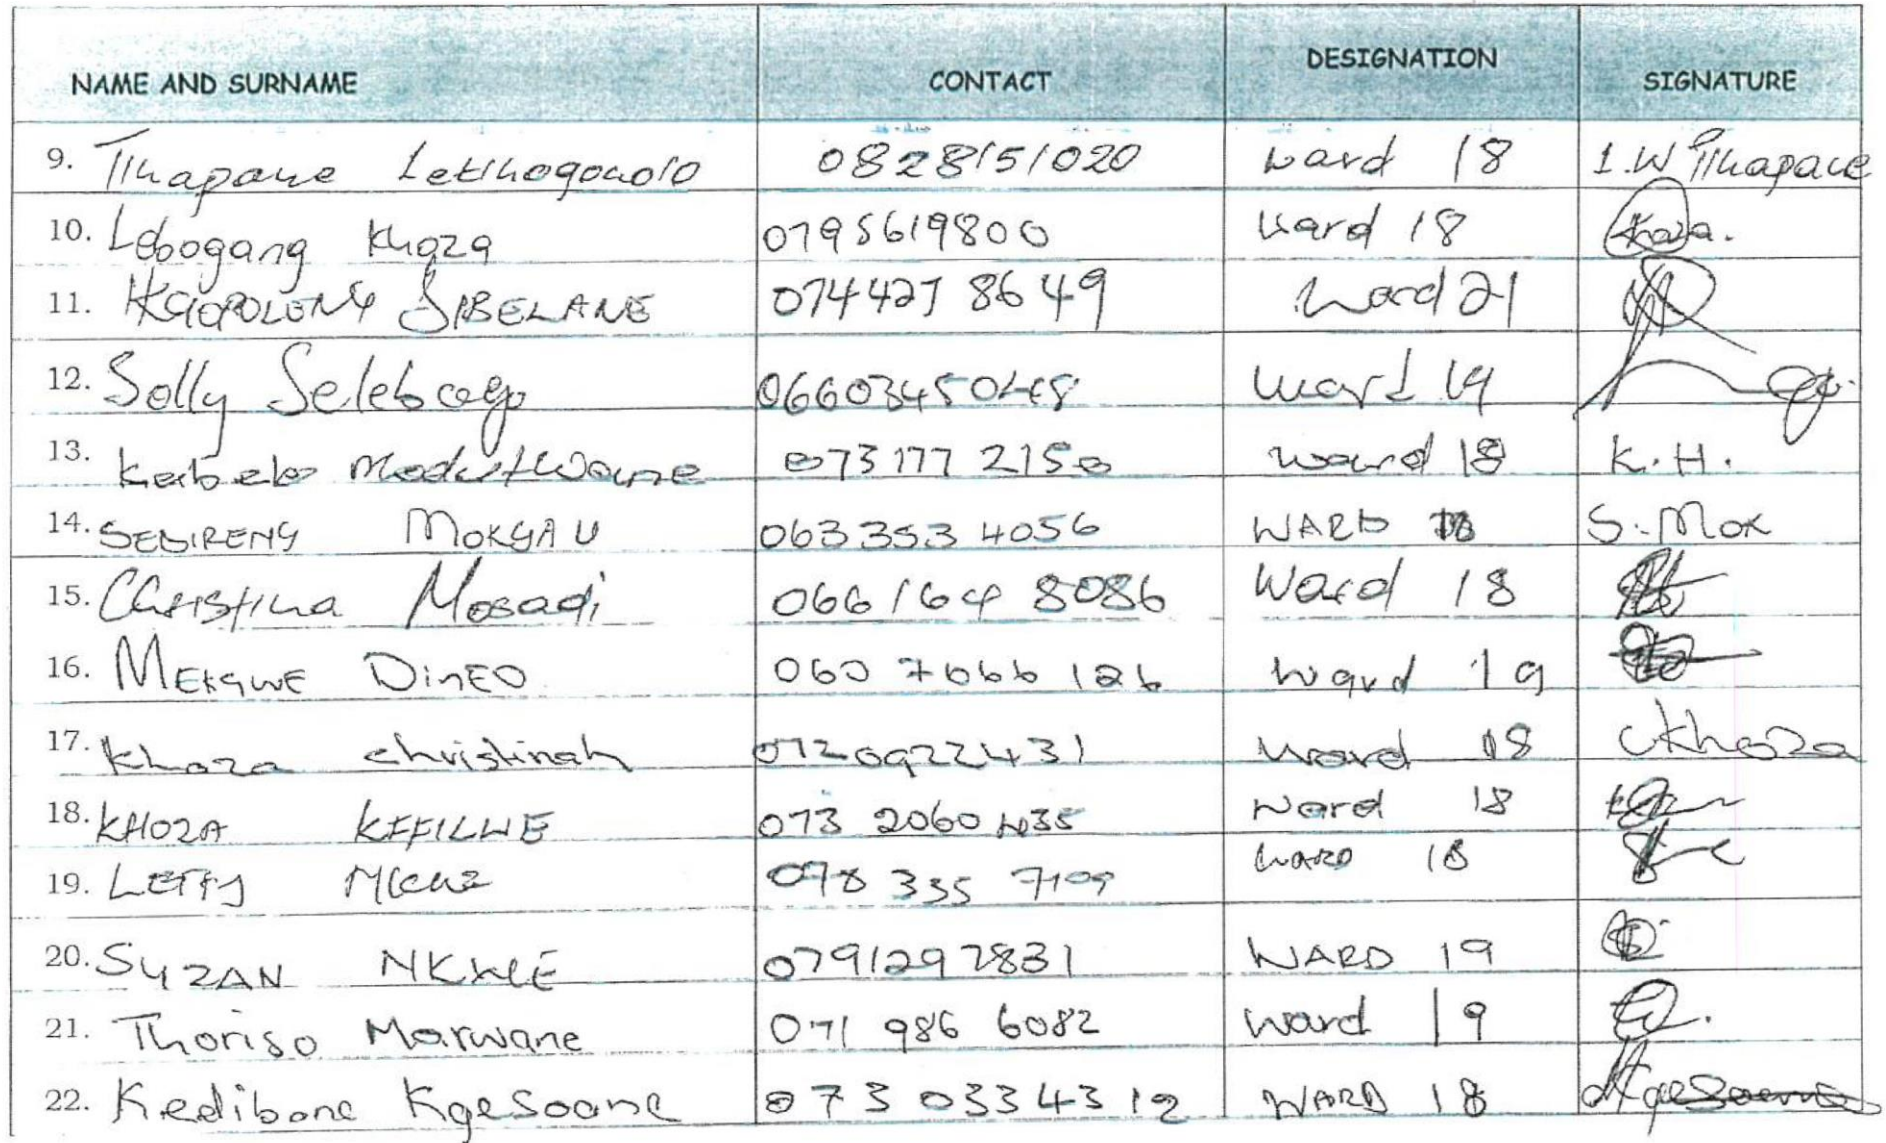 NAME AND SURNAME CONTACT DESIGNATION SIGNATURE
9. Letlhogonolo 0828151020 ward 18
10. Lebogang Khoza 0795619800 ward 18 Khoza.
11. SIBELANE 074427 8649 ward 21
12. Solly ward 19
13. Kabelo 073 177 2150 ward 18 K.H.
14. MOKGAU 063 353 4056 WARD 18 S. Mok
15. Christina Mosadi 066 164 8086 Ward 18
16. MEKGWE DINEO 060 7666 126 ward 19
17. Khoza christinah 0720922431 ward 18 CKhoza
18. KHOZA 073 2060 435 ward 18
19. LETTY 078 335 7109 WARD 18
20. SUZAN 0791297831 WARD 19
21. Thoriso Marwane 071 986 6082 ward 19
22. Kedibone Kgesoane 073 0334312 WARD 18